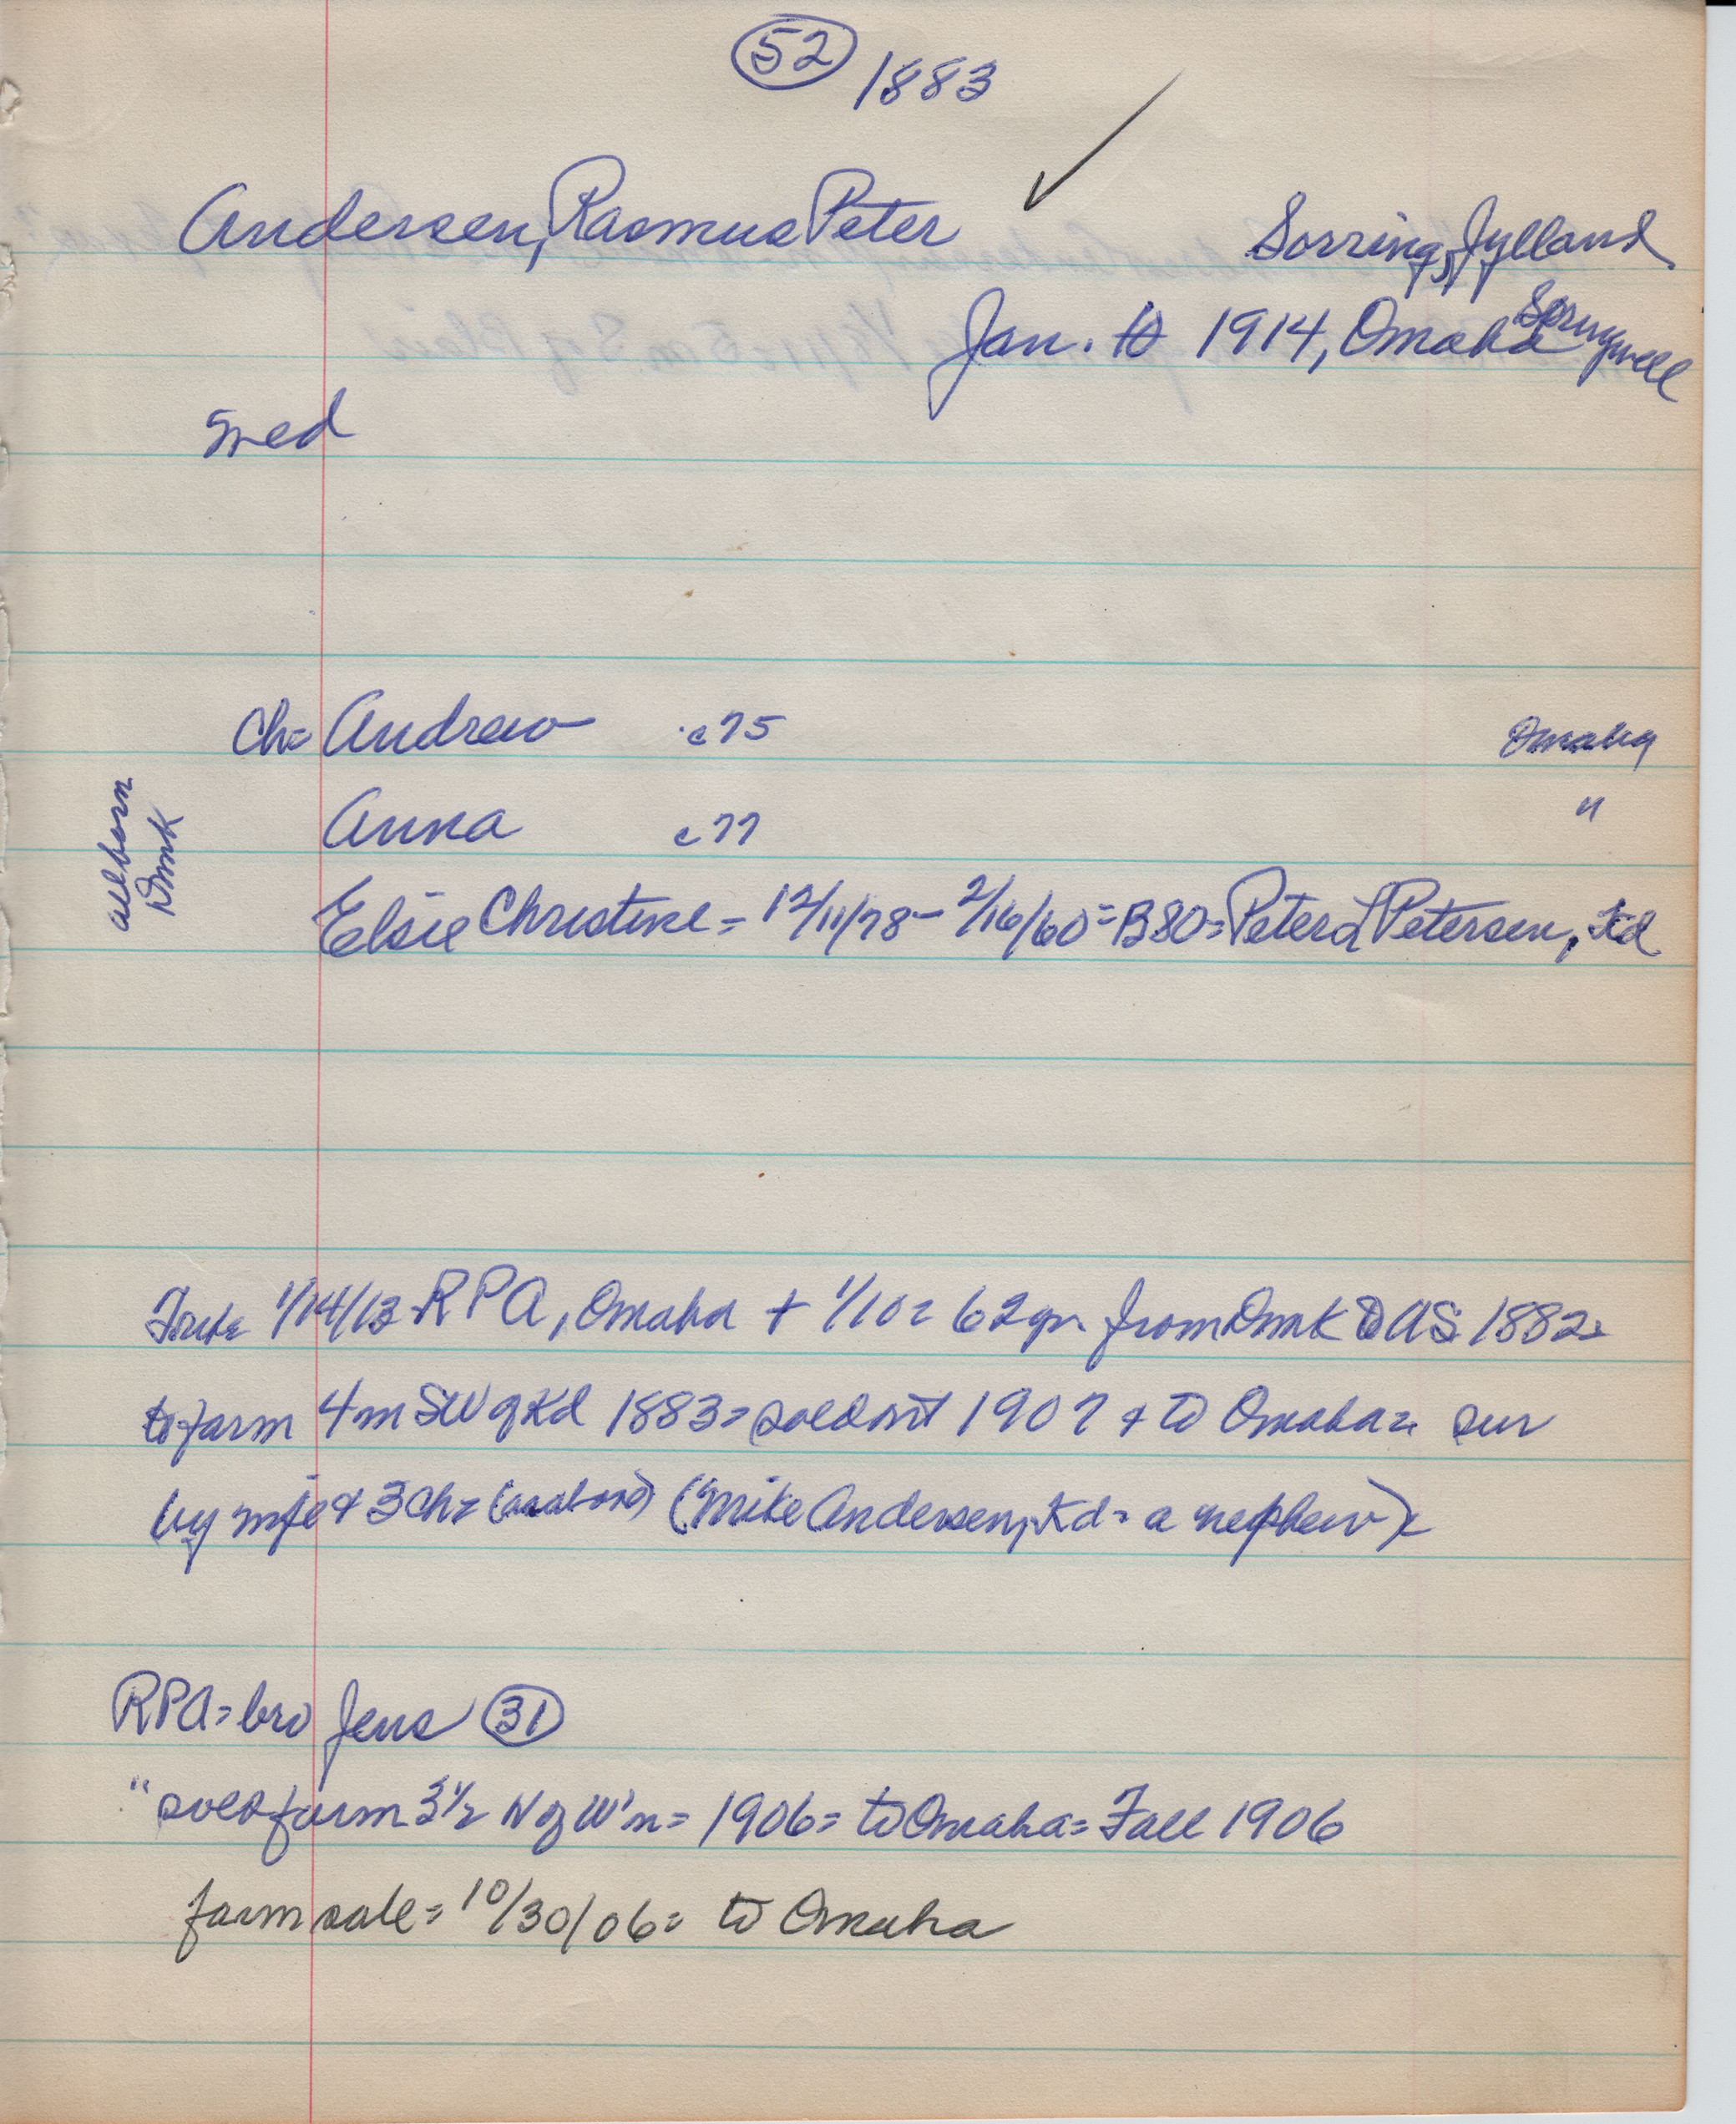 52 1883
Andersen, Rasmus Peter Sorring, Jylland
Jan. 10 1914, Omaha Springwell
med
Ch= Andrew c75 Omaha
Anna c77 "
all born
Dmk
Elsie Christine = 12/11/78 - 2/16/60 = B80 = Peter L Petersen, Kd
1/14/13 RPA, Omaha + 1/10 = 62 yr. from Dmk to AS 1882=
to farm 4m SW of Kd 1883 = sold out 1907 + to Omaha = sur
by wife + 3 ch = (as above) (Mike Andersen, Kd = a nephew) =
RPA = bro Jens 31
" sold farm 3 1/2 N of W'n = 1906 = to Omaha = Fall 1906
farm sale = 10/30/06 = to Omaha